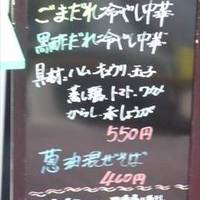 ごまだれ冷やし中華
黒酢だれ冷やし中華
具材:ハム キュウリ 玉子
蒸し鶏 トマト ワカメ
からし 赤しょうが
550円
葱油混ぜそば
460円